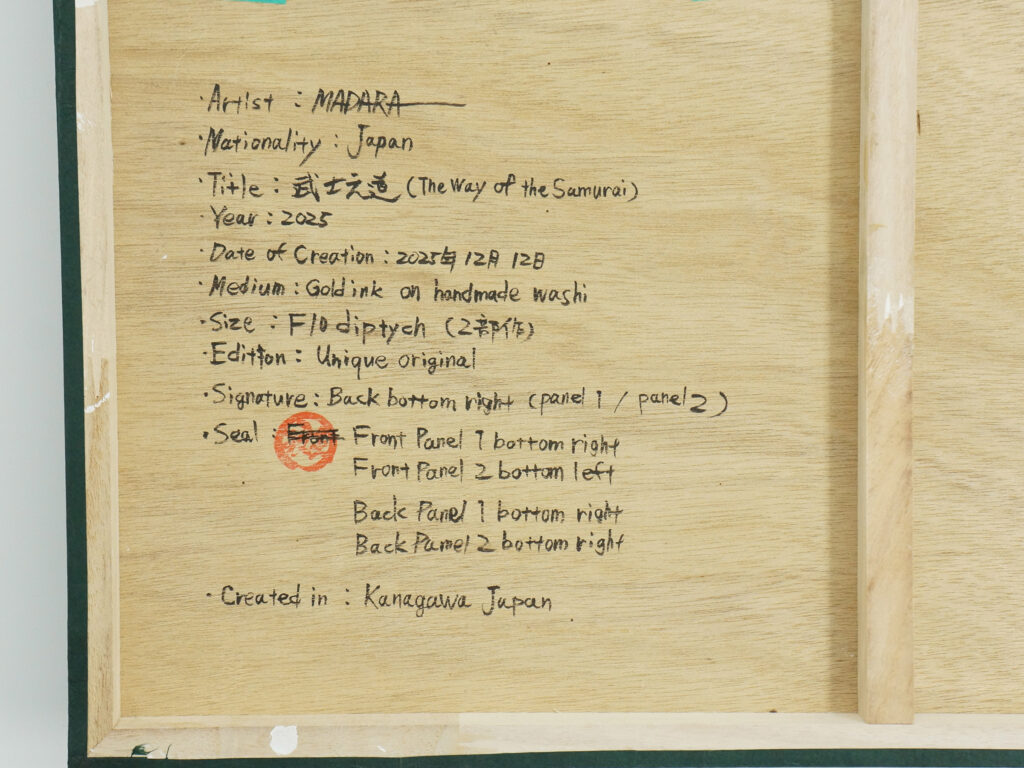 ・Artist : MADARA
・Nationality : Japan
・Title : 武士之道 (The Way of the Samurai)
・Year : 2025
・Date of Creation : 2025年 12月 12日
・Medium : Gold ink on handmade washi
・Size : F10 diptych (2部作)
・Edition : Unique original
・Signature : Back bottom right (panel 1 / panel 2)
・Seal : Front Front Panel 1 bottom right
Front Panel 2 bottom left
Back Panel 1 bottom right
Back Panel 2 bottom right
・Created in : Kanagawa Japan